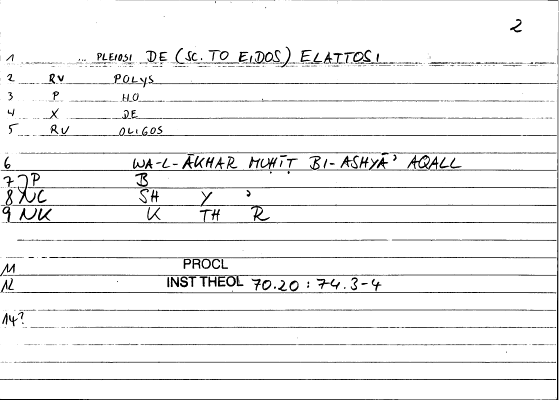 2
1 .. PLEIOSI DE (SC. TO EIDOS) ELATTOSI
2 RV POLYS
3 P HO
4 X DE
5 RV OLIGOS
6 WA-L-ĀKHAR MUḤĪṬ BI-ASHYĀʾ AQALL
7 P B
8 NC SH Y ʾ
9 NK K TH R
11 PROCL
12 INST THEOL 70.20 : 74.3-4
14?